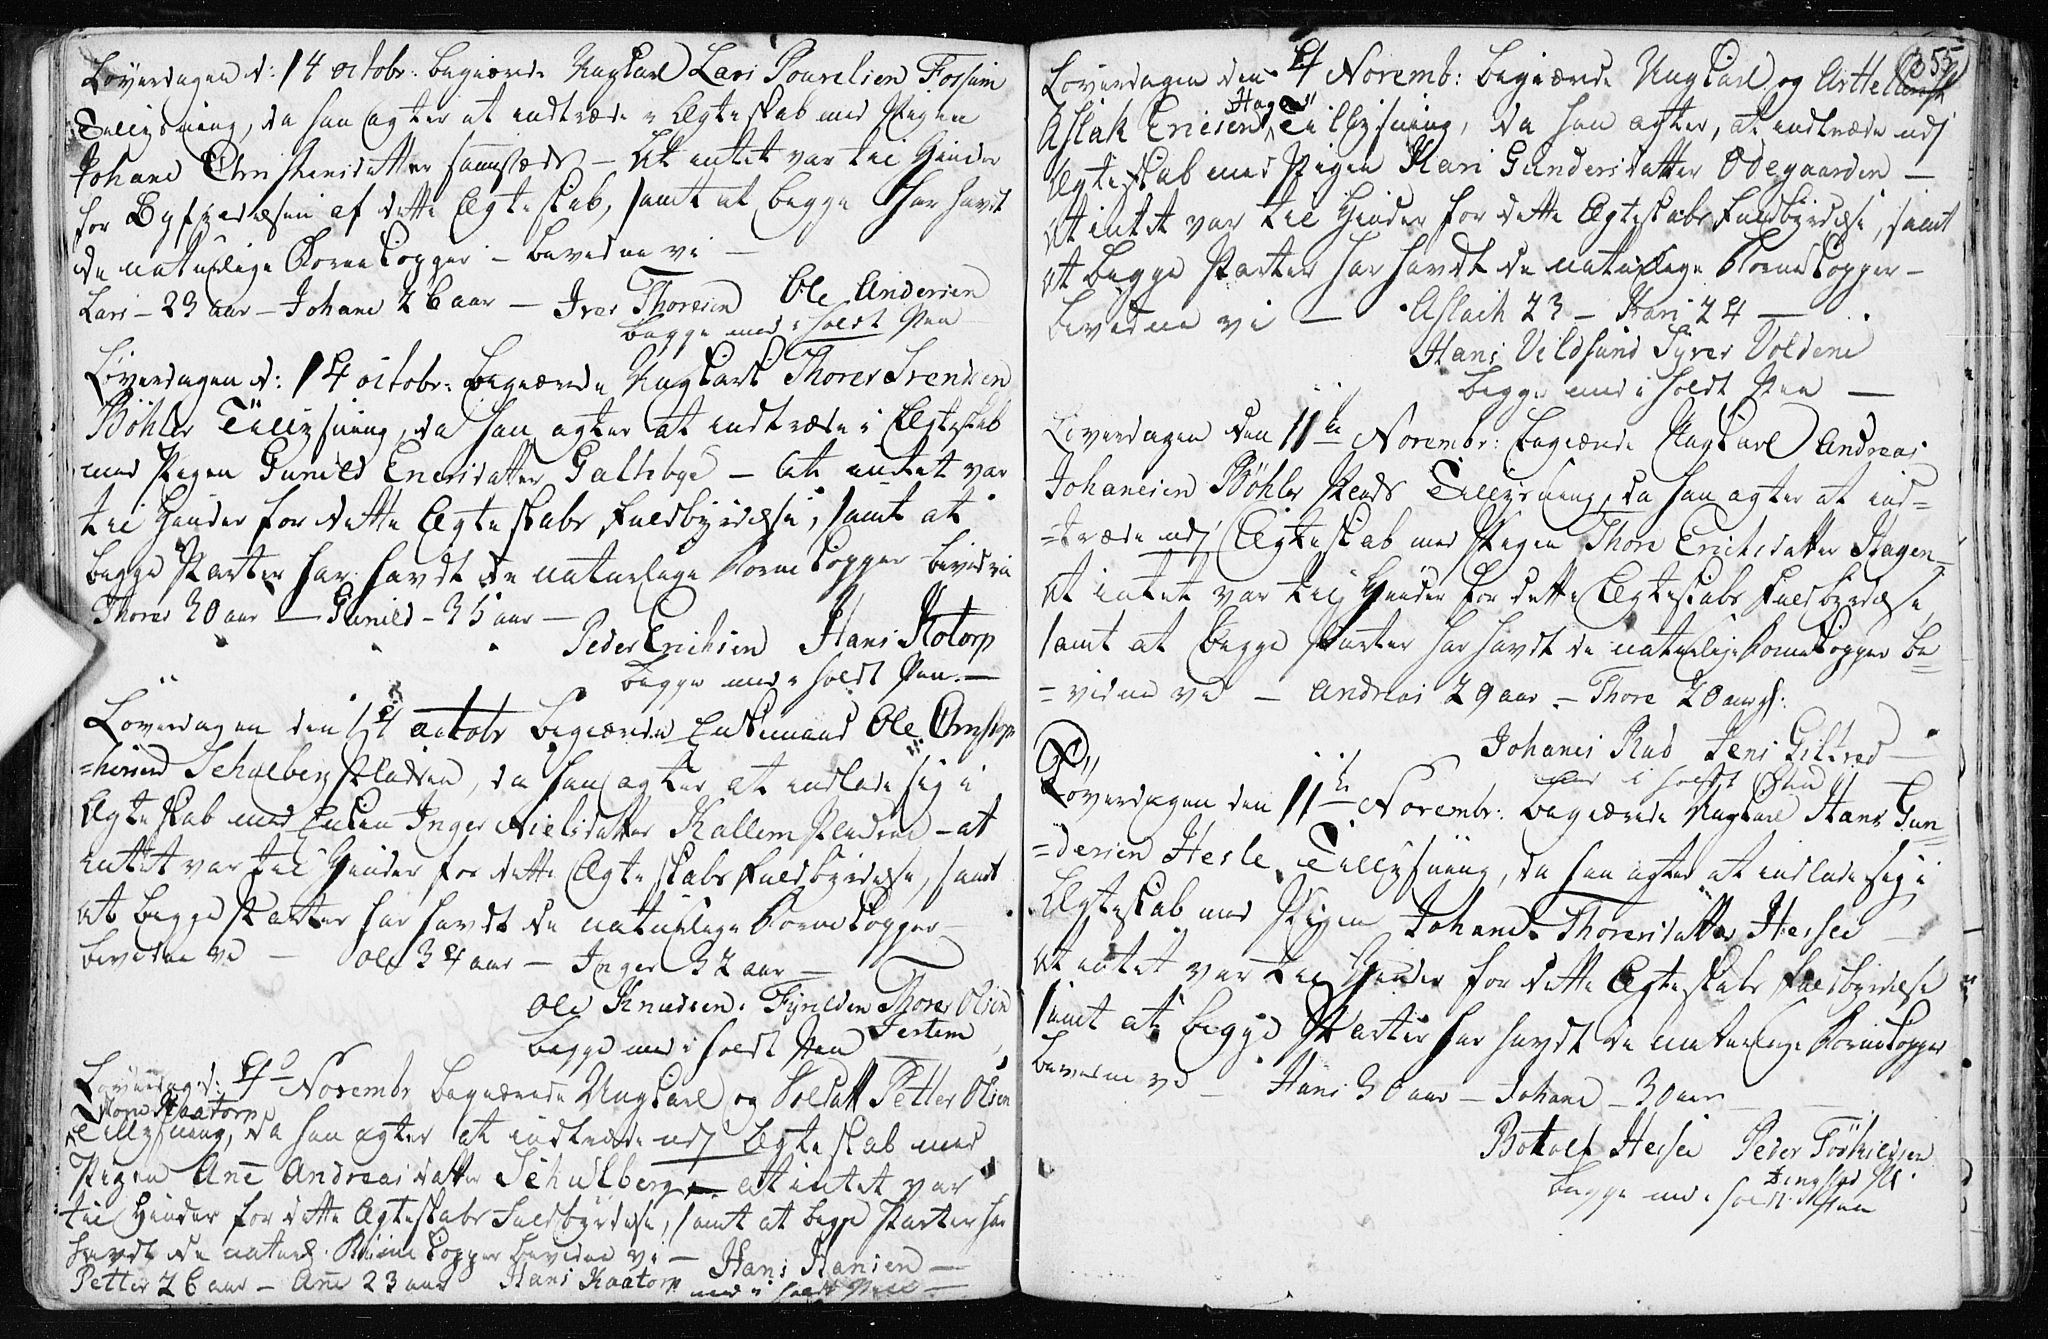 Løverdagen d: 14 octobr: begiærede Ungkarl Lars Povelsen Fossum
Tillysning, da han agter at indtræde i Ægteskab med Pigen
Johane Christensdatter sammestæds – At intet var til Hinder
for Byfyrdelsen af dette Ægteskab, samt at begge har havt
de naturlige Kornekopper – bevidne vi –
Lars – 23 aar – Johane 26 aar – Iver Thoresen Ole Andersen
begge med i holdt Pen
Løverdagen d: 14 octobr: begiærede Ungkarl Thorer Svendsen
Böhler Tillysning, da han agter at indtræde i Ægteskab
med Pigen Gunild Enersdatter Galtebye – At intet var
til Hinder for dette Ægteskabs Fuldbyrdelse, samt at
begge Parter har havdt de naturlige Kornekopper bevid: vi
Thorer 30 aar – Gunild – 35 aar –
Peder Erichsen Hans Kotorp
begge med i holdt Pen. –
Løverdagen den 14 octobr begiærede Enkemand Ole Christop
=hersen Schulberg Pladsen, da han agter at indlade sig i
Ægteskab med Enken Inger Nielsdatter Kallem Pladsen – at
intet var til Hinder for dette Ægteskabs Fuldbyrdelse, samt
at begge Parter har havdt de naturlige Kornekopper –
bevidne vi – Ole 34 aar – Inger 32 aar –
Ole Knudsen Fyrilden Thorer Olsen
begge med i holdt Pen Jertem
Løverdag d: 4 Novembr begiærede Ungkarl og Soldat Petter Olsen
Kaatorp
Tillysning, da han agter at indtræde udj Ægteskab med
Pigen Ane Andreasdatter Schulberg – at intet var
til Hinder for dette Ægteskabs Fuldbyrdelse, samt at begge Parter har
havdt de naturl. Kornekopper bevidne vi – Hans Hansen –
Petter 26 aar – Ane 23 aar Hans Kaatorp med i holdt Pen –
355
Løverdagen den 4 Novemb: begiærede Ungkarl og
Hagen
Aslak Ericsen Tillysning, da han agter, at indtræde udj
Ægteskab med Pigen Kari Gundersdatter Ödegaarden –
At intet var til Hinder for dette Ægteskabs Fuldbyrdelse, samt
at begge Parter har havdt de naturlige Kornekopper –
bevidne vi – Aslach 23 – Kari 24 –
Hans Vildsund Syver Voldene
begge med i holdt Pen –
Løverdagen den 11te Novembr: begiærede Ungkarl Andreas
Johanesen Böhler Tillysning, da han agter at ind=
=træde udj Ægteskab med Pigen Thore Erichsdatter Hagen –
At intet var til Hinder for dette Ægteskabs Fuldbyrdelse,
samt at begge Parter har havdt de naturlige Kornekopper be=
=vidne vi – Andreas 29 aar – Thore 20 aar
Johanes Rud Jens Giltrød –
med i holdt Pen
Løverdagen den 11te Novembr: begiærede Ungkarl Hans Gun=
=dersen Hesle Tillysning, da han agter at indlade sig i
Ægteskab med Pigen Johane Thoresdatter Heslee –
At intet var til Hinder for dette Ægteskabs Fuldbyrdelse
samt at begge Parter har havdt de naturlige Kornekopper
bevidne vi – Hans 30 aar – Johane – 30 aar
Botolf Heslee Peder Torkieldsen
begge med i holdt Pen